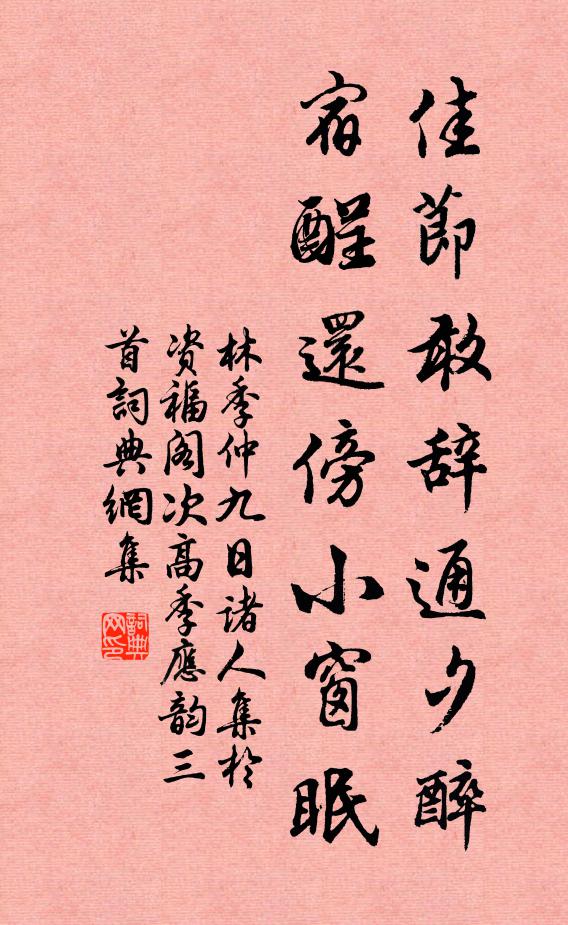 佳節敢辞通夕醉
宿酲還傍小窗眠
林季仲九日诸人集於
资福阁次高季應韵三
首詞典網集
詞典网印